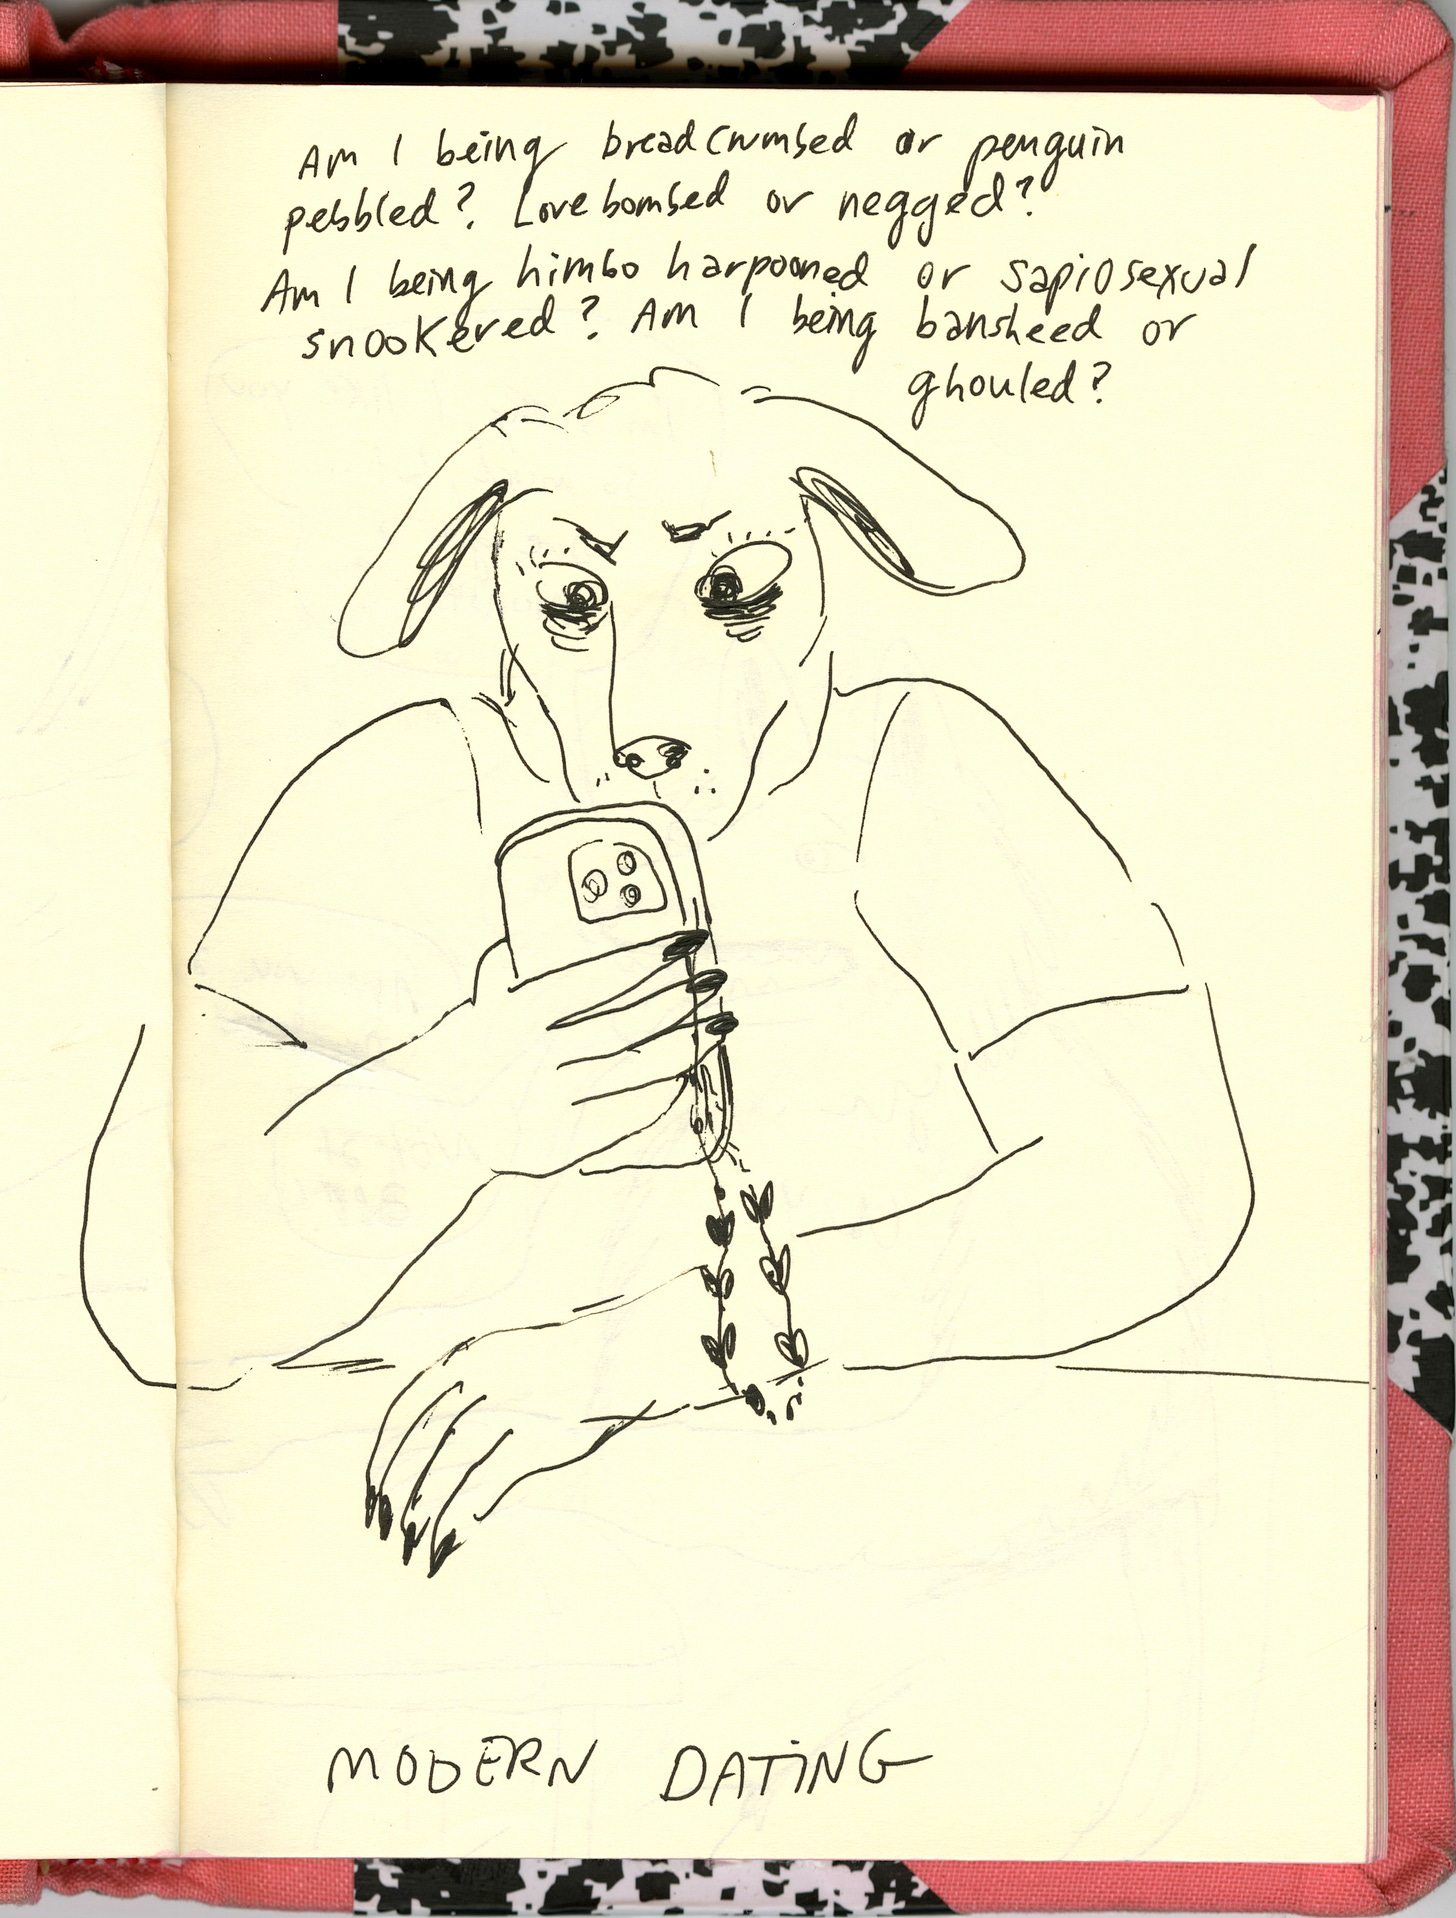 Am I being breadcrumbed or penguin
pebbled? Love bombed or negged?
Am I being himbo harpooned or sapiosexual
snookered? Am I being bansheed or
ghouled?
MODERN DATING